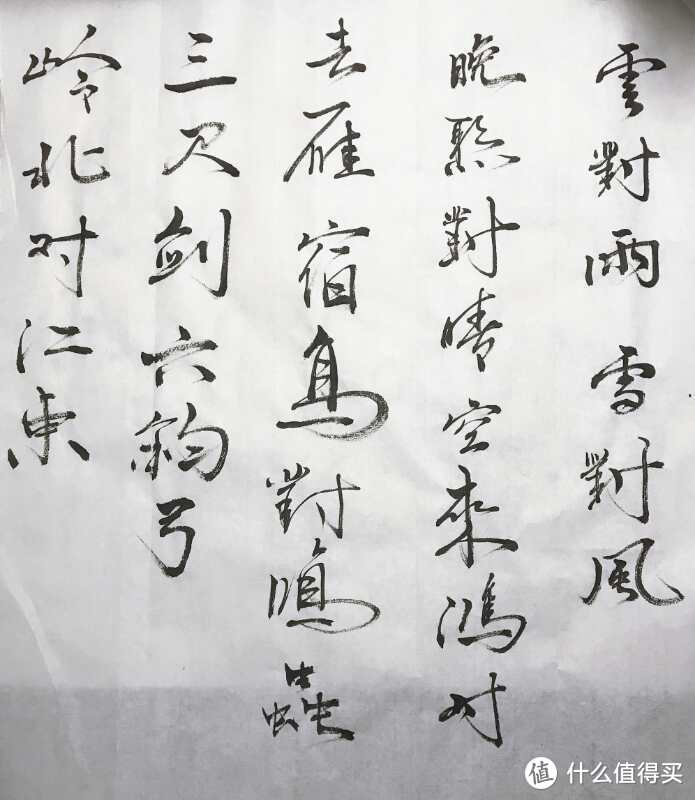 雲對雨 雪對風
晚照對晴空來鴻对
去雁宿鳥對鳴蟲
三尺剑六鈞弓
岭北对江东
值 什么值得买